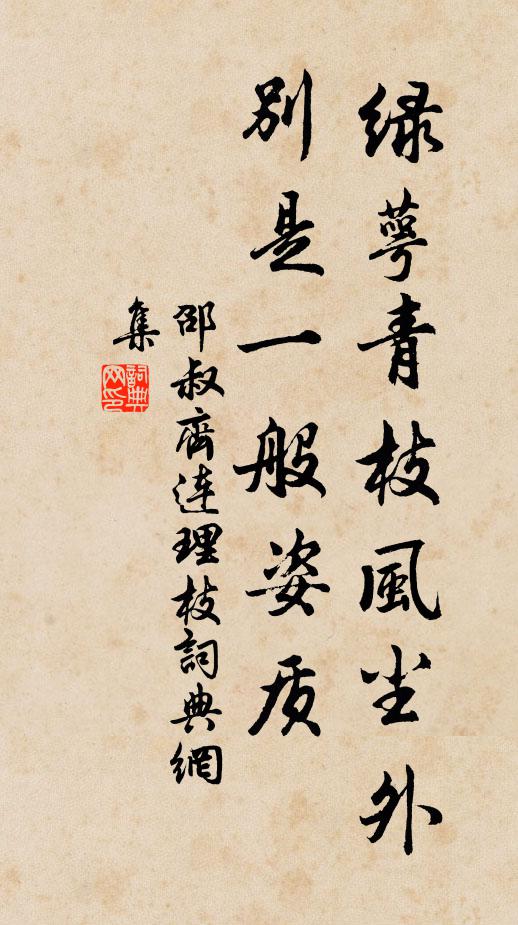 绿萼青枝風尘外
别是一般姿质
邵叔齊连理枝詞典網
集
詞典
网印